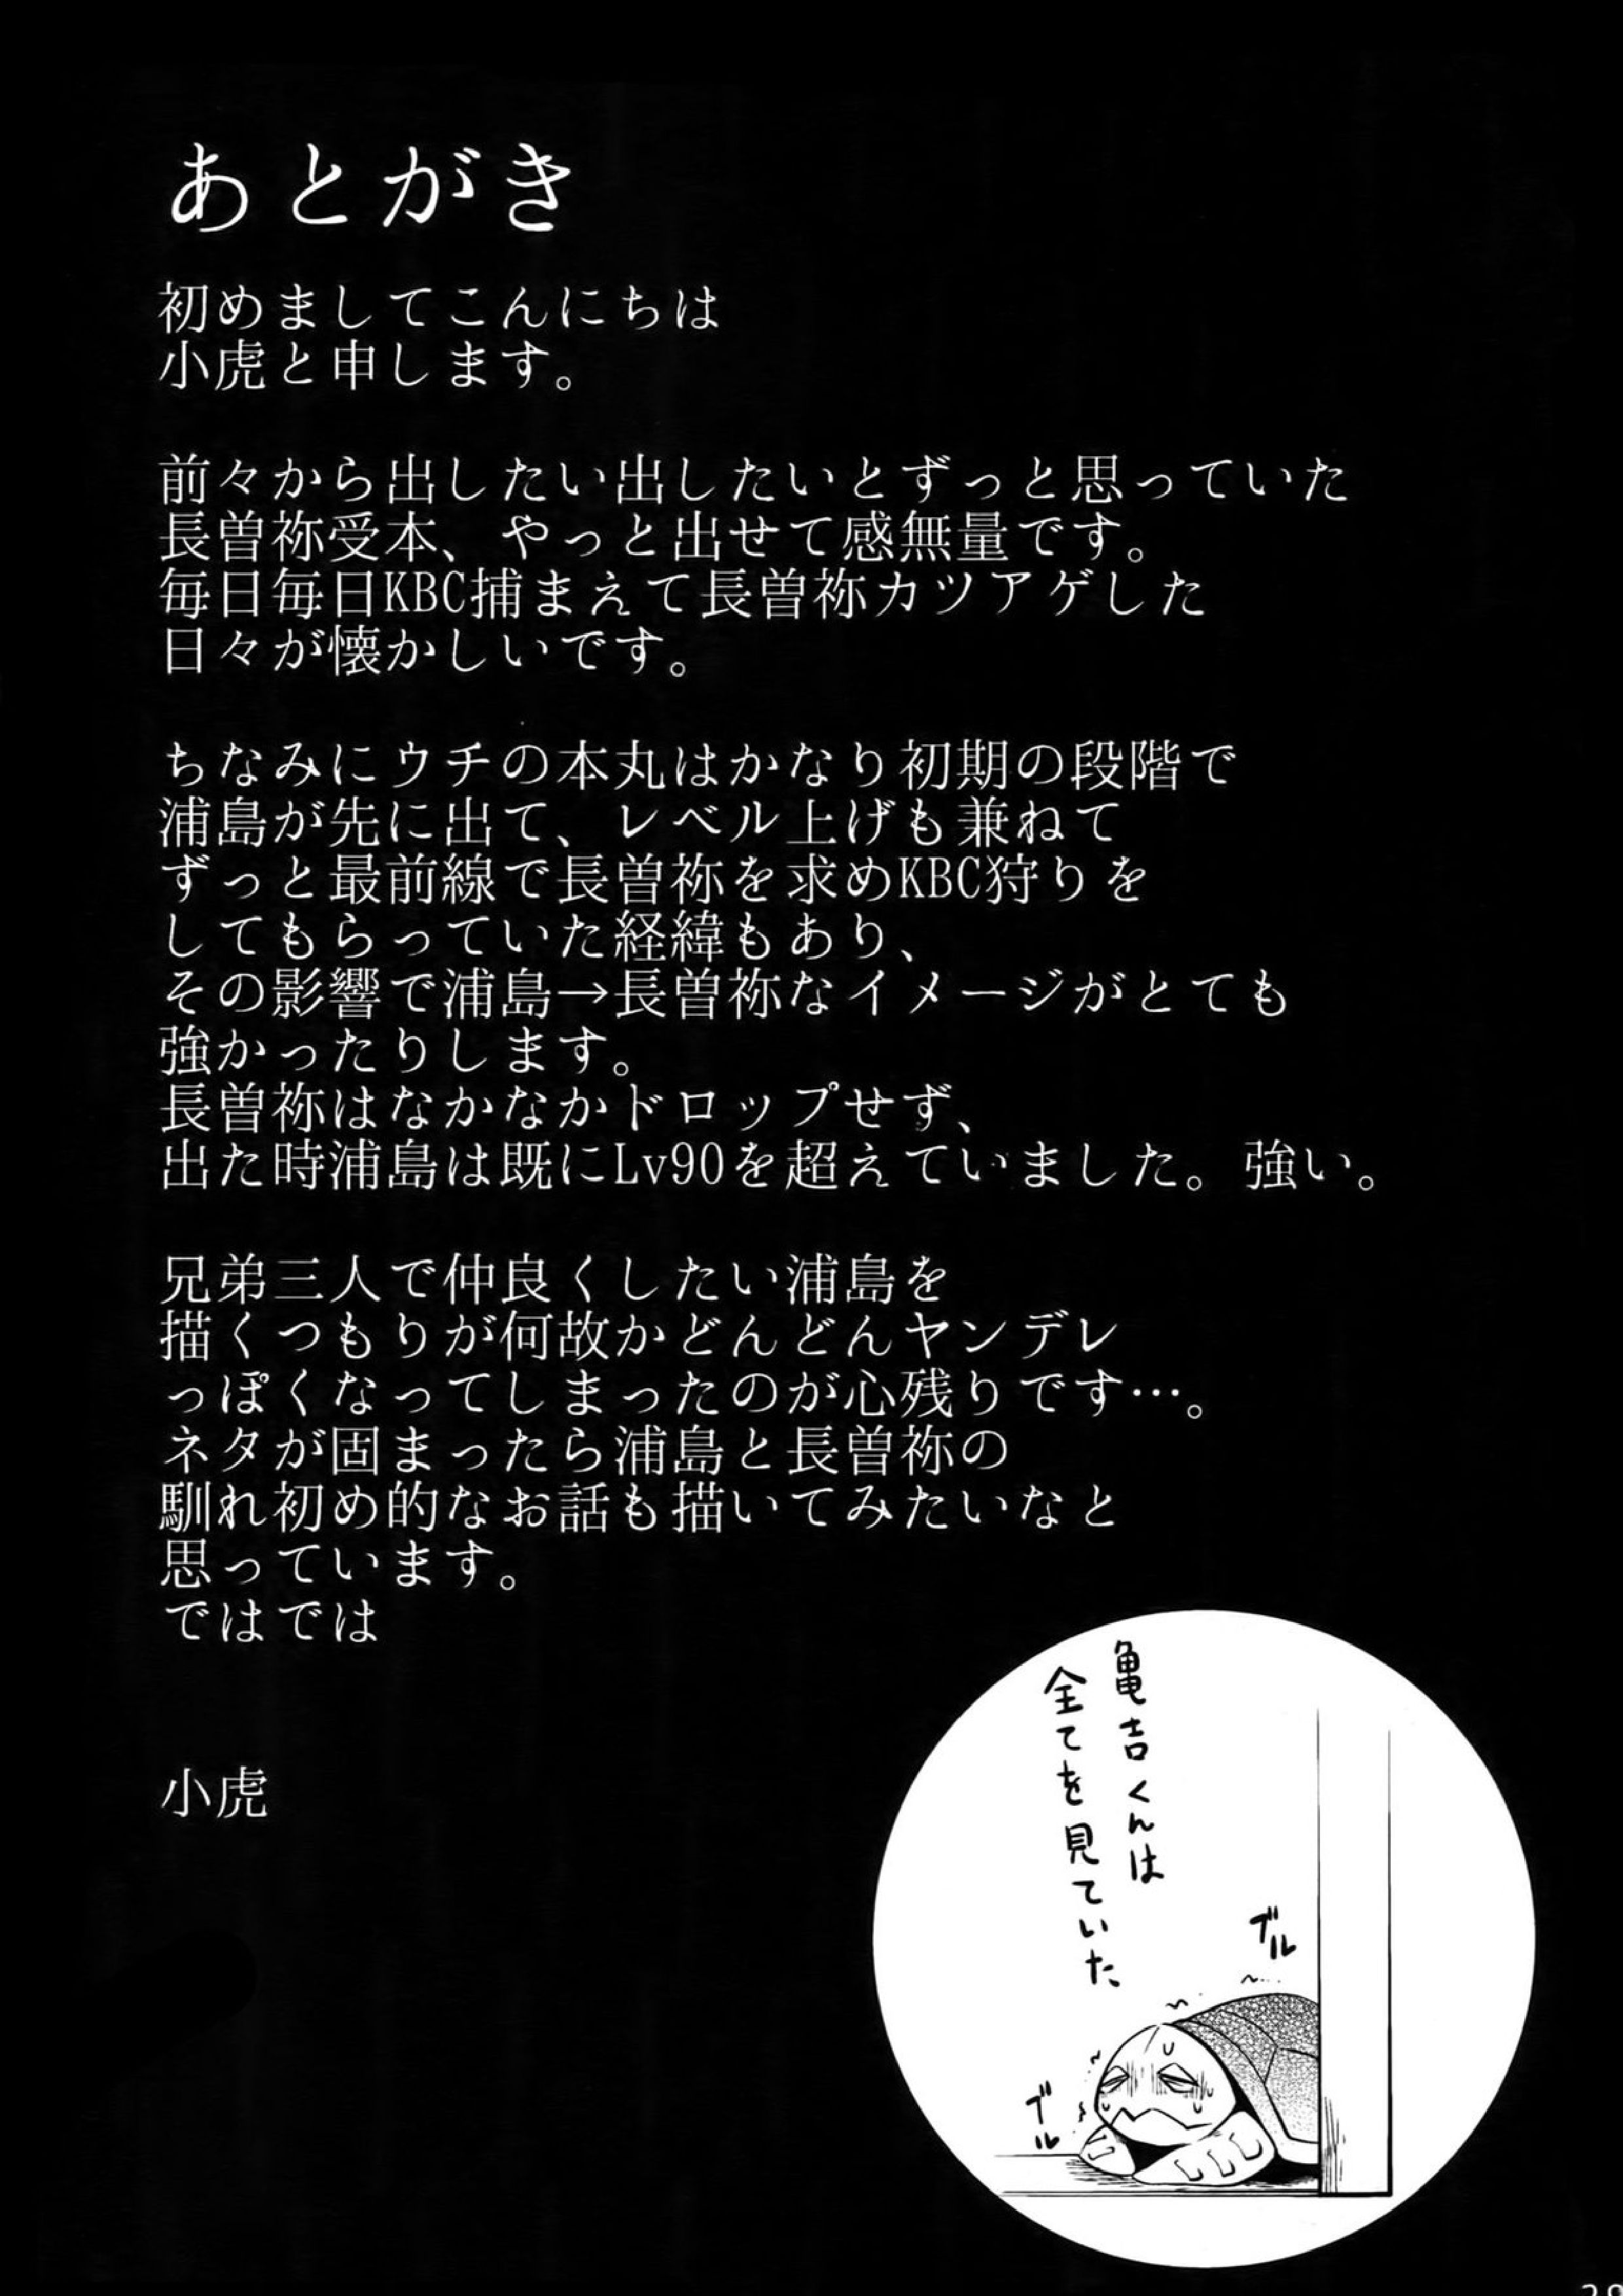 あとがき
初めましてこんにちは
小虎と申します。
前々から出したい出したいとずっと思っていた
長曽祢受本、やっと出せて感無量です。
毎日毎日KBC捕まえて長曽祢カツアゲした
日々が懐かしいです。
ちなみにウチの本丸はかなり初期の段階で
浦島が先に出て、レベル上げも兼ねて
ずっと最前線で長曽祢を求めKBC狩りを
してもらっていた経緯もあり、
その影響で浦島→長曽祢なイメージがとても
強かったりします。
長曽祢はなかなかドロップせず、
出た時浦島は既にLv90を超えていました。強い。
兄弟三人で仲良くしたい浦島を
描くつもりが何故かどんどんヤンデレ
っぽくなってしまったのが心残りです…。
ネタが固まったら浦島と長曽祢の
馴れ初め的なお話も描いてみたいなと
思っています。
ではでは
小虎
亀吉くんは
全てを見ていた、
ブル
ブル